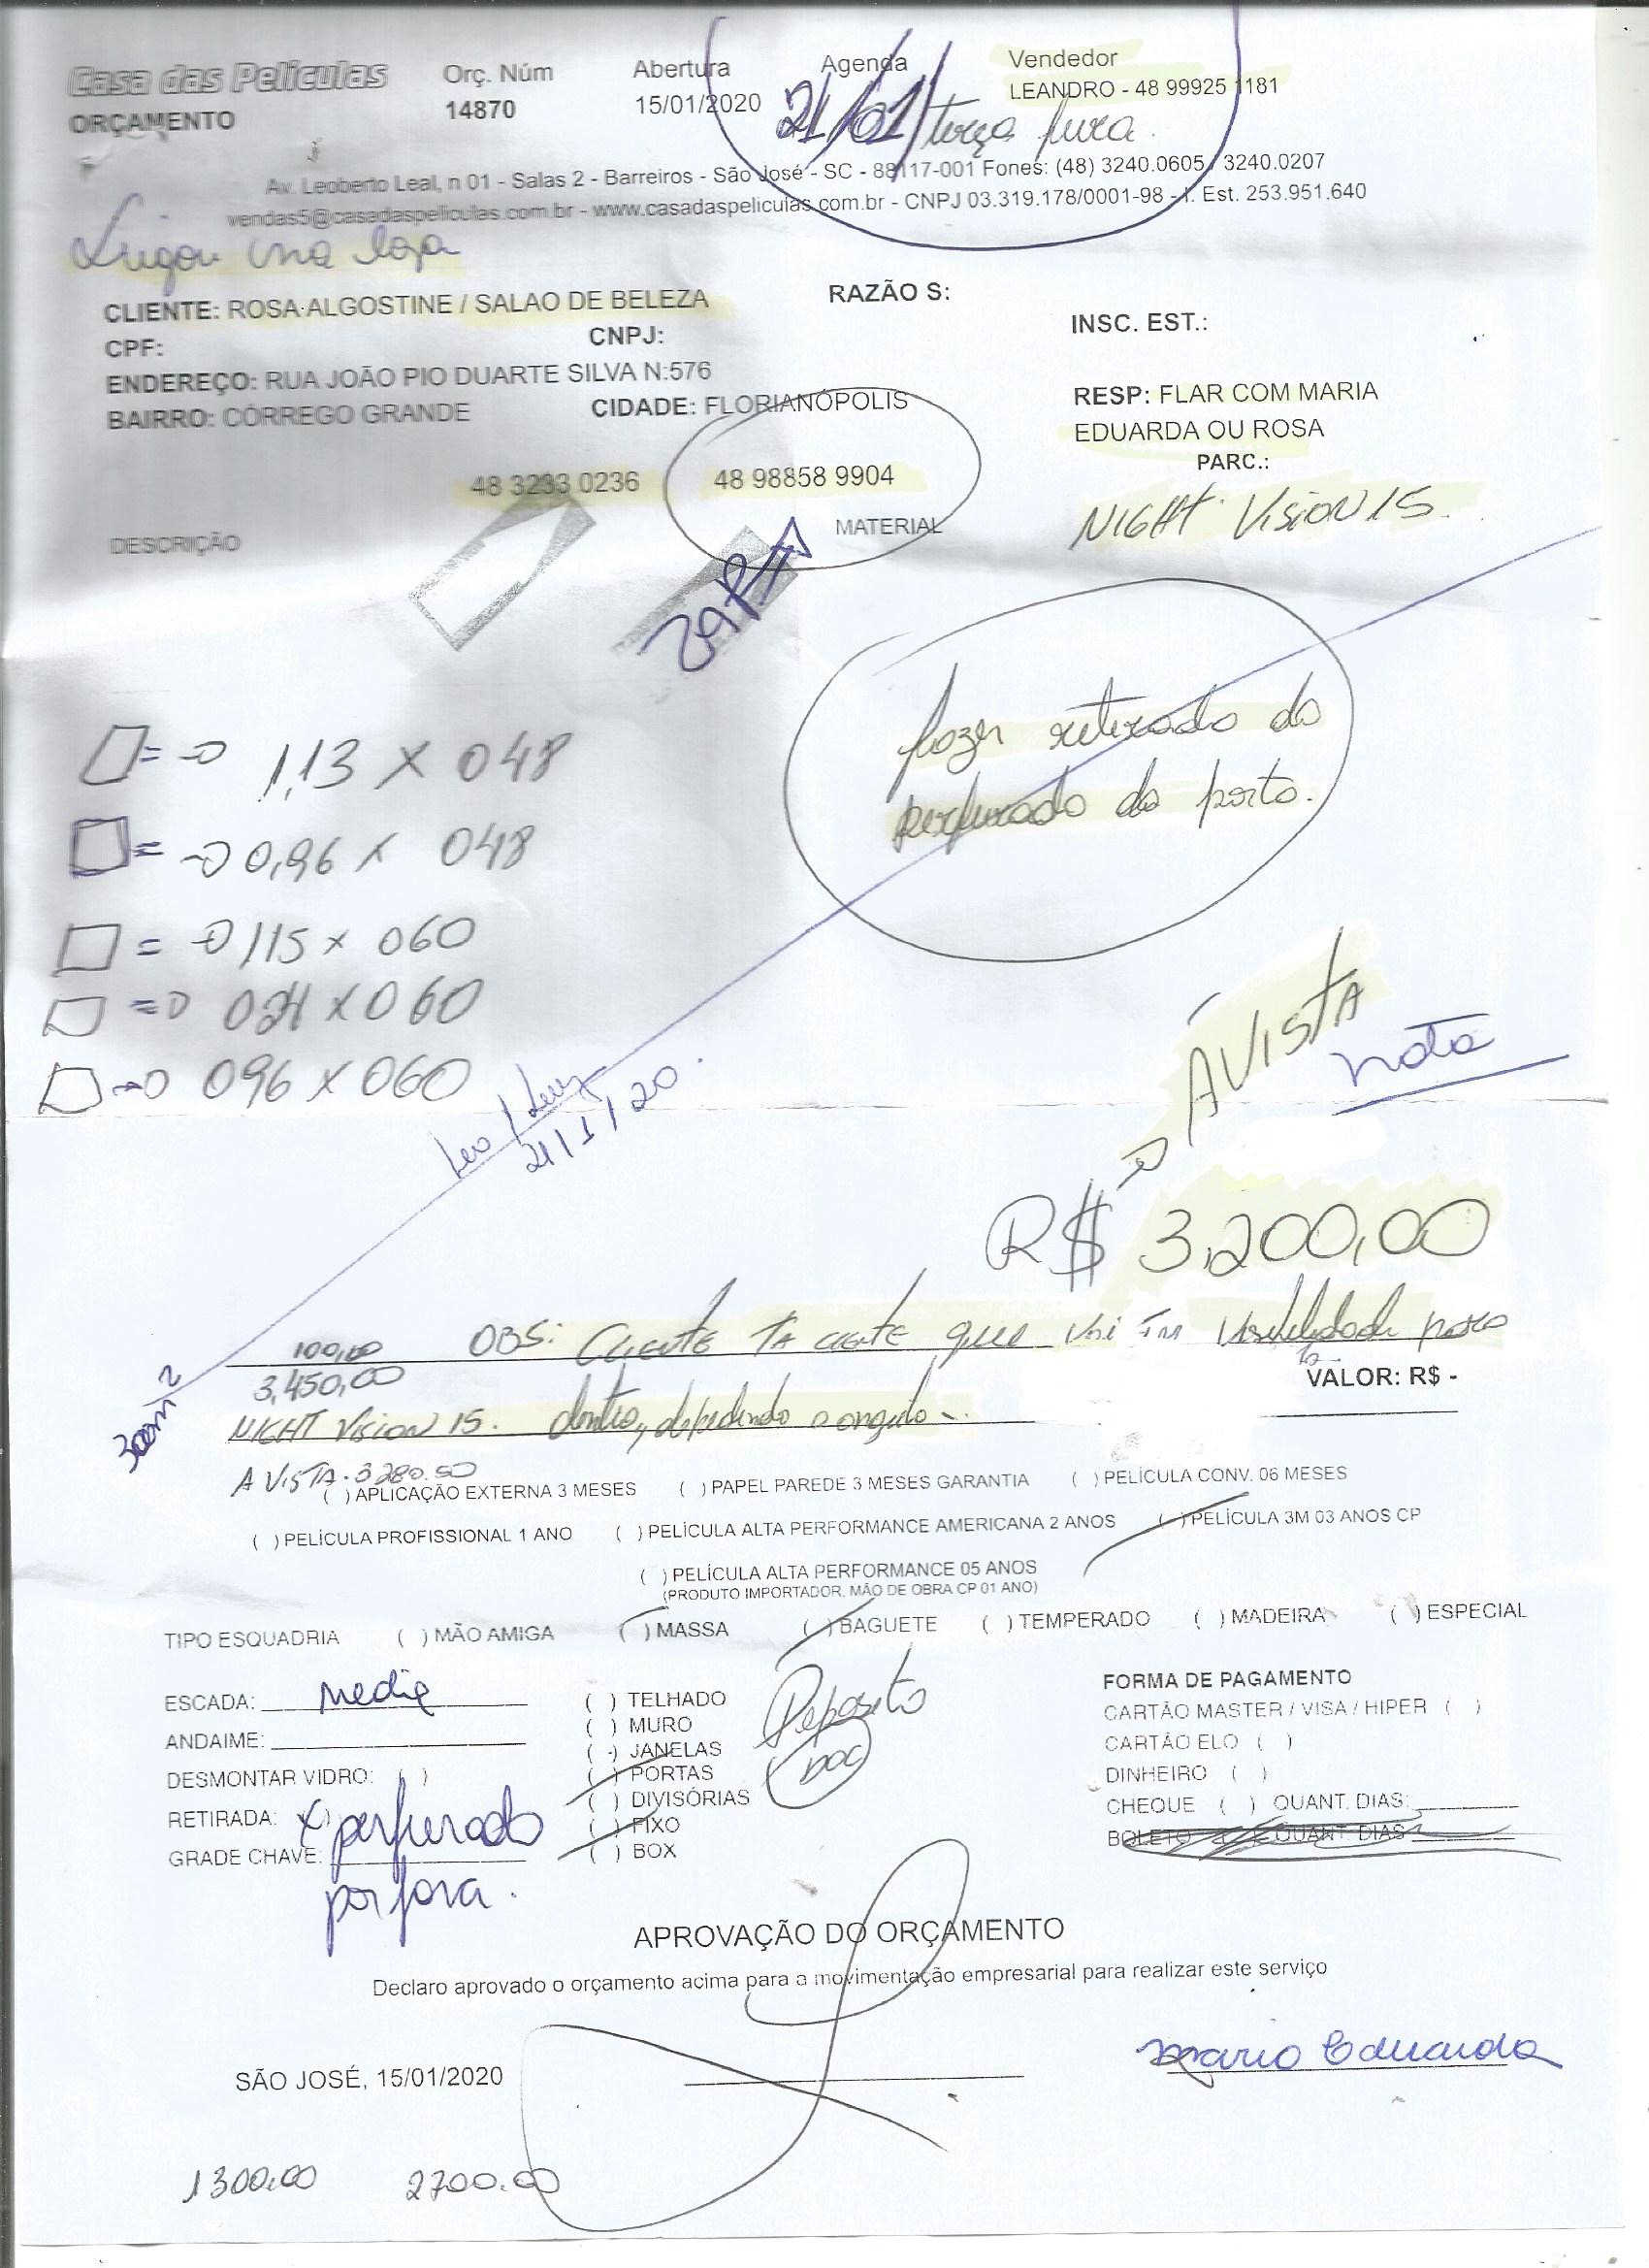 Casa das Películas Orç. Núm Abertura Agenda Vendedor
ORÇAMENTO 14870 15/01/2020 21/01/ terça feira. LEANDRO - 48 99925 1181
Av. Leoberto Leal, n 01 - Salas 2 - Barreiros - São José - SC - 88117-001 Fones: (48) 3240.0605 / 3240.0207
vendas5@casadaspeliculas.com.br - www.casadaspeliculas.com.br - CNPJ 03.319.178/0001-98 - I. Est. 253.951.640
Ligou na loja
CLIENTE: ROSA ALGOSTINE / SALAO DE BELEZA RAZÃO S:
CPF: CNPJ: INSC. EST.:
ENDEREÇO: RUA JOÃO PIO DUARTE SILVA N:576
BAIRRO: CÓRREGO GRANDE CIDADE: FLORIANÓPOLIS RESP: FLAR COM MARIA
EDUARDA OU ROSA
PARC.:
48 3233 0236 48 98858 9904
NIGHT VISION 15
DESCRIÇÃO MATERIAL
fazer retirada do
perfurado da porta.
1,13 x 048
0,96 x 048
115 x 060
x 060
096 x 060
Leo / Luiz
21/1/20.
ÁVISTA
nota
R$ 3.200,00
100,00 OBS: CLIENTE TA CIENTE que vai TER visibilidade para
3,450,00 VALOR: R$ -
NIGHT VISION 15. dentro, dependendo o angulo...
A VISTA. 3280.50
( ) APLICAÇÃO EXTERNA 3 MESES ( ) PAPEL PAREDE 3 MESES GARANTIA ( ) PELÍCULA CONV. 06 MESES
( ) PELÍCULA PROFISSIONAL 1 ANO ( ) PELÍCULA ALTA PERFORMANCE AMERICANA 2 ANOS ( ) PELÍCULA 3M 03 ANOS CP
( ) PELÍCULA ALTA PERFORMANCE 05 ANOS
(PRODUTO IMPORTADOR, MÃO DE OBRA CP 01 ANO)
TIPO ESQUADRIA ( ) MÃO AMIGA ( ) MASSA ( ) BAGUETE ( ) TEMPERADO ( ) MADEIRA ( ) ESPECIAL
ESCADA: media
ANDAIME:
DESMONTAR VIDRO: ( )
RETIRADA: (x) perfurado
GRADE CHAVE:
por fora.
( ) TELHADO
( ) MURO
( ) JANELAS
( ) PORTAS
( ) DIVISÓRIAS
( ) FIXO
( ) BOX
Deposito
DOC
FORMA DE PAGAMENTO
CARTÃO MASTER / VISA / HIPER ( )
CARTÃO ELO ( )
DINHEIRO ( )
CHEQUE ( ) QUANT. DIAS:
BOLETO ( ) QUANT. DIAS
APROVAÇÃO DO ORÇAMENTO
Declaro aprovado o orçamento acima para a movimentação empresarial para realizar este serviço
Maria Eduarda
SÃO JOSÉ, 15/01/2020
1300.00 2700.00